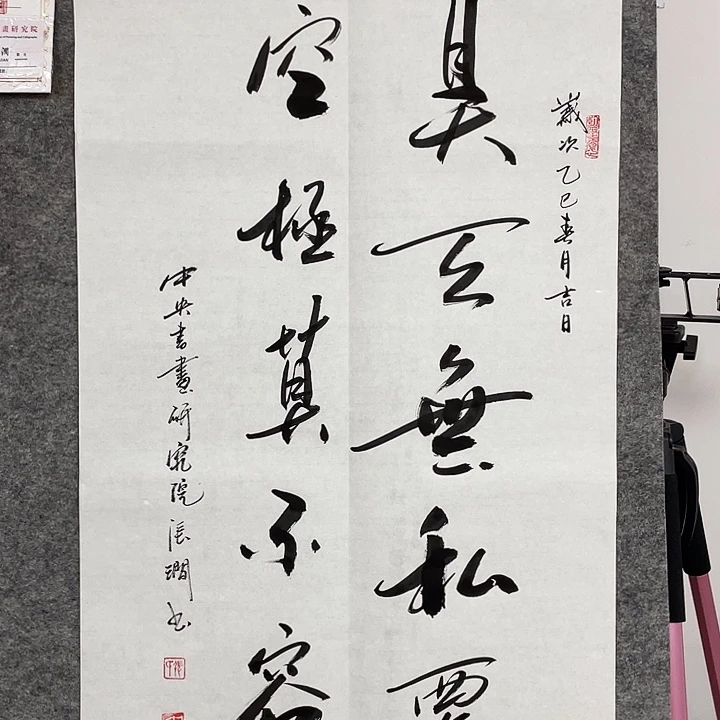 歲次乙巳春月吉日
天無私
空極莫不容
中央書畫研究院張澗书
畫研究院